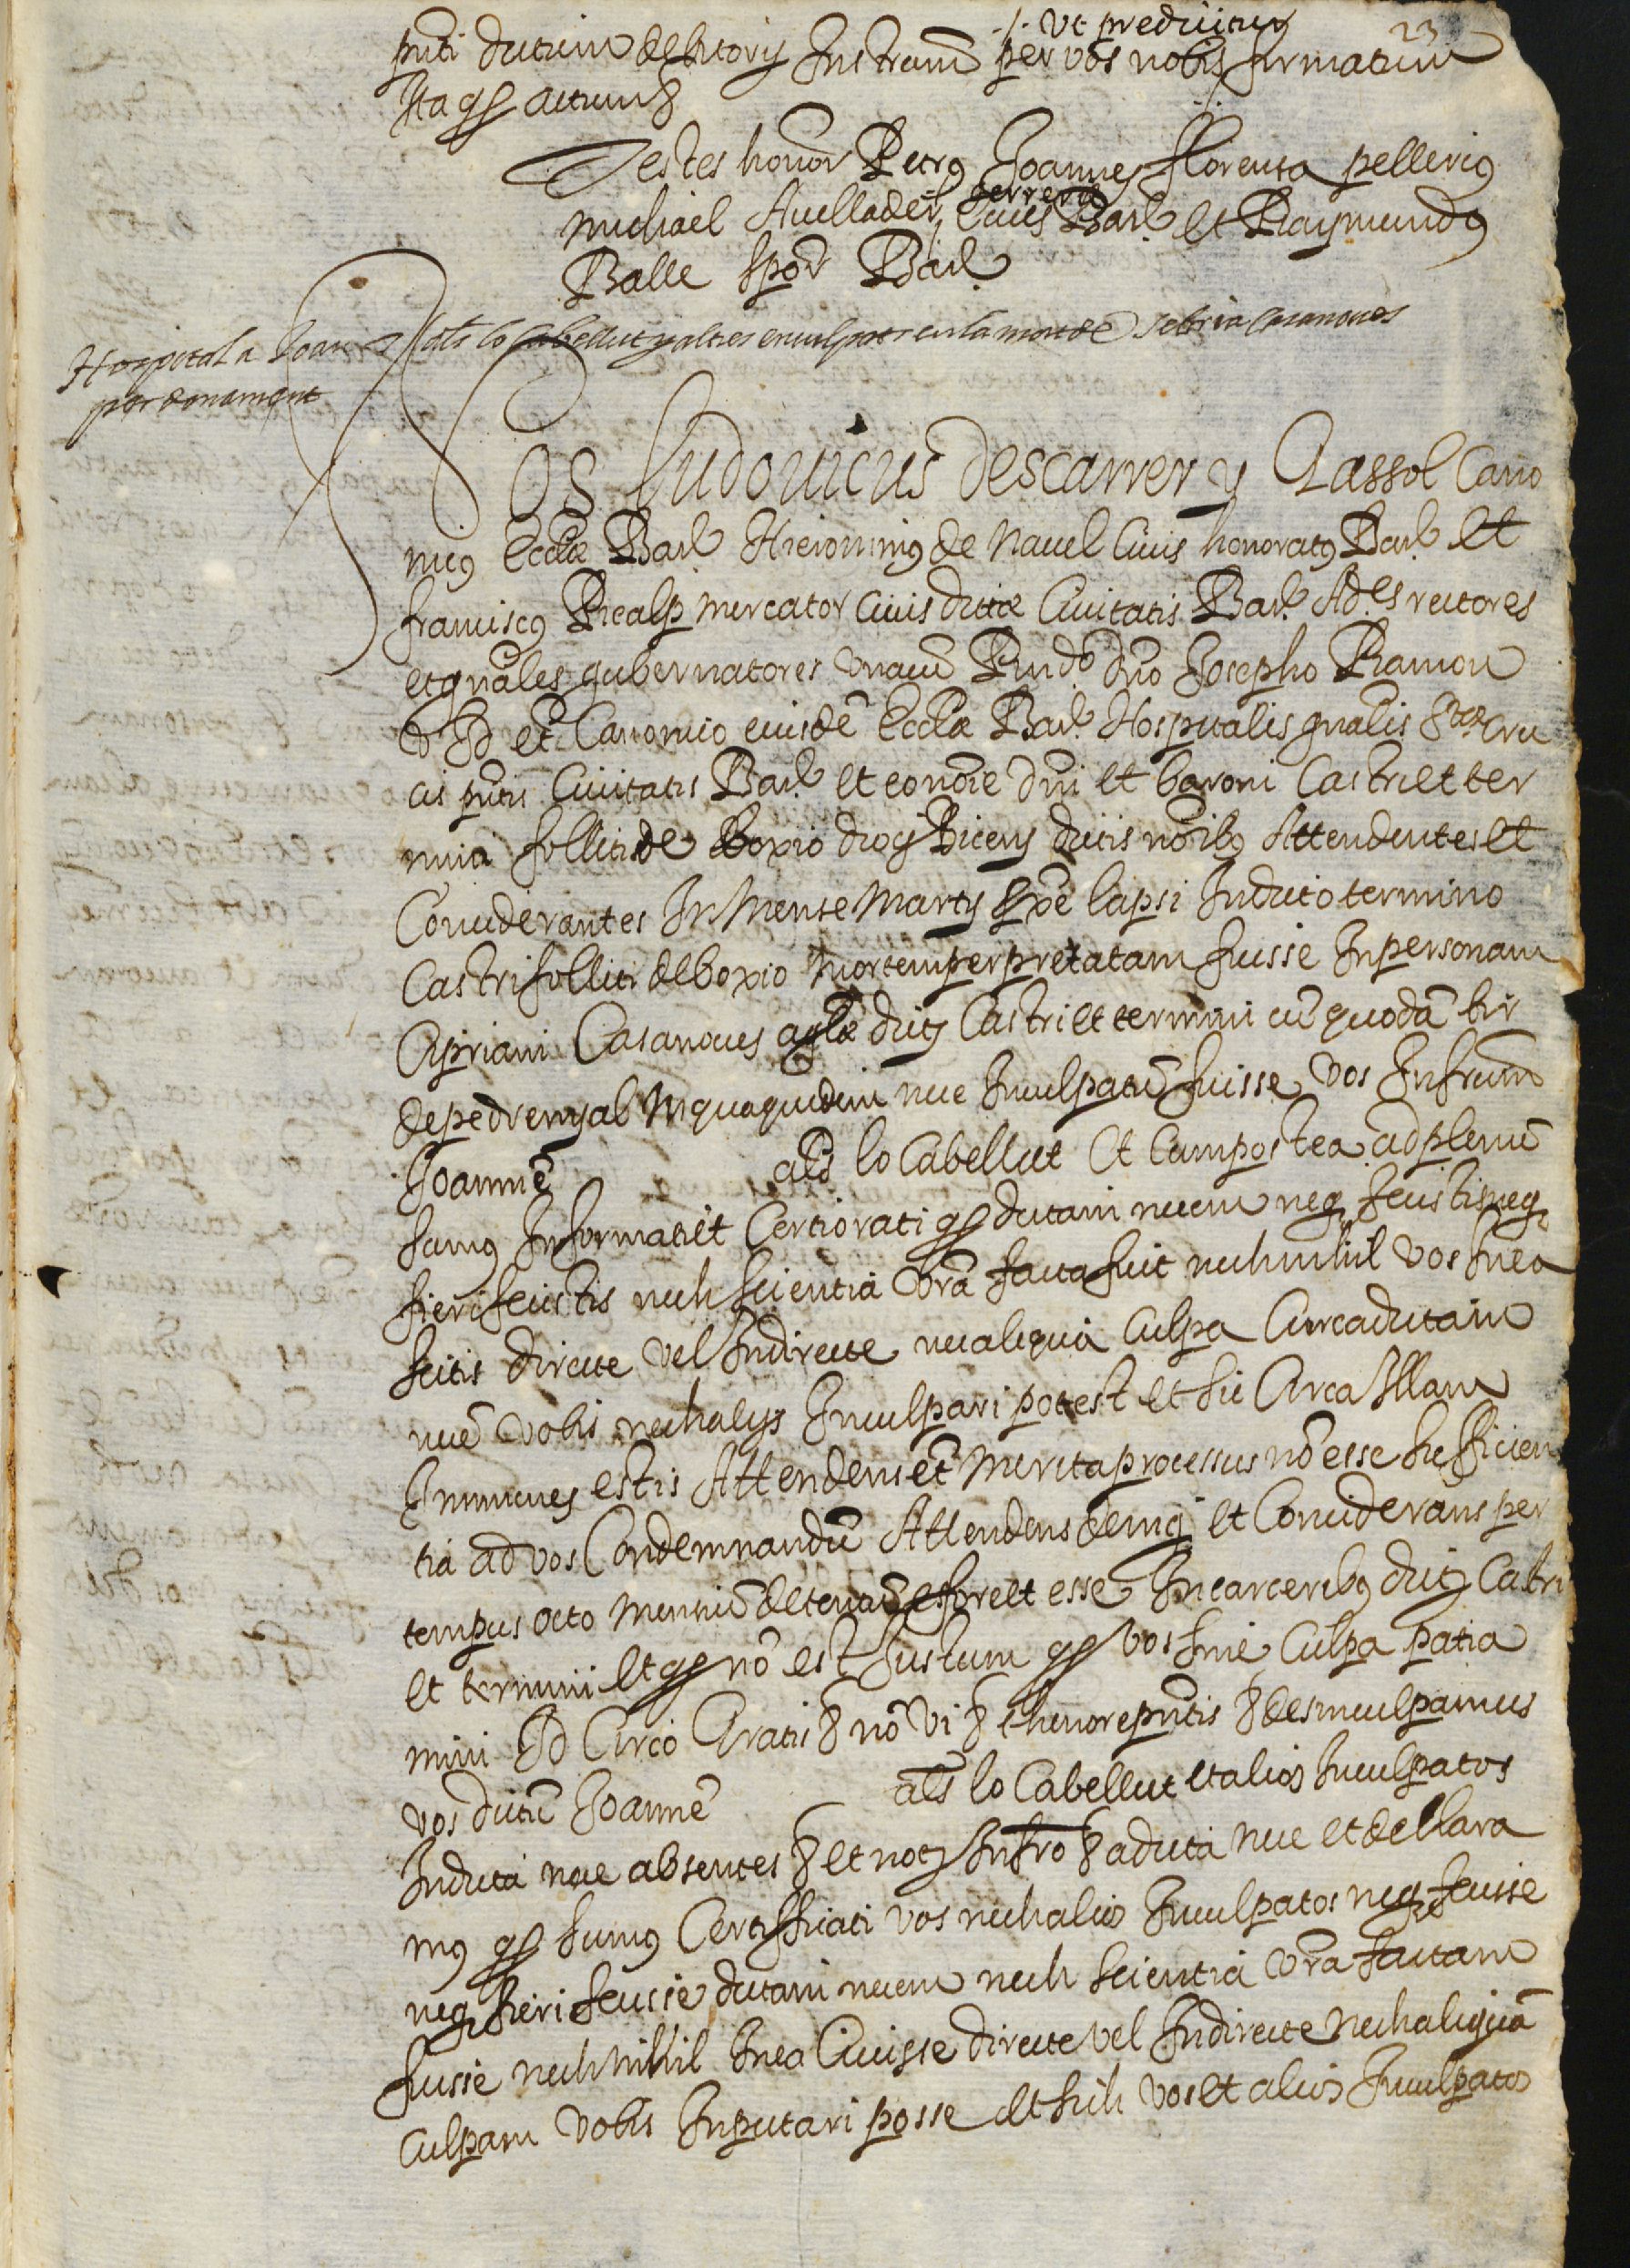 ·/· Ut predicitur
23
pnti dictum debitorij Instrum per vos nobis firmatum
Ita qȝ actum &
Testes honor Petrus Joannes florensa pellerius
ferrerij
michael Avellader cives Bar. et Raymundus
Balle scpor Bar.
Hospital a Joan als lo Cabellut y altres enculpats en la mort de Sebria Casanoves
perdonament
Nos Ludovicus Descarrer y Gassol Cano
nicus Eccliæ Bar. Hieronimus de Navel Civis honoratus Bar. et
franciscus Ricalp mercator civis dictæ Civitatis Bar. Ad.es rectores
et gnales gubernatores unacu Rndo dno Josepho Ramon
V J D et Canonico eiusde Eccliæ Bar. Hospitalis gnalis Stæ Cru
cis pntis Civitatis Bar. et eo noie dni et baroni Castri et ter
mini folliti de Boxio diocis Vicens dictis noibus Attendentes et
Considerantes In Mense Martij pxe lapsi In dicto termino
Castri folliti de boxio mortem perpretatam fuisse In personam
Cipriani Casanoves aglæ dicti Castri et termini cu quoda tir
de pedrenyal In qua quidem nece Inculpatu fuisse vos Infrum
Joanne als lo Cabellut Et cum postea ad plenu
sumus Informati et Certiorati qȝ dictam necem neq fecistis neq
fieri fecistis nech scientia vra facta fuit nech nihil vos In ea
scitis directe vel Indirecte nec aliqua culpa Circa dictam
nece vobis nech alijs Inculpari potest et sic Circa Illam
Inmunes estis Attendens et Merita processus no esse sufficien
tia ad vos Condemnandu Attendens deniq et Considerans per
tempus octo Mensiu detenti esse In carceribus dicti Castri
et termini et qȝ no est Justum qȝ vos sine culpa patia
mini Id Circo Gratis & no vi & thenore pntis & desinculpamus
vos dictu Joanne als lo Cabellut et alios Inculpatos
In dicta nece absentes & et not Infro & a dicta nece et declara
mus qȝ sumus Certifficati vos nech alios Inculpatos neq fecisse
neq fieri fecisse dictam necem nech scientia vra factam
fuisse nech nihil In ea scivisse directe vel Indirecte nech aliqua
culpam vobis Inputari posse et sich vos et alios Inculpatos